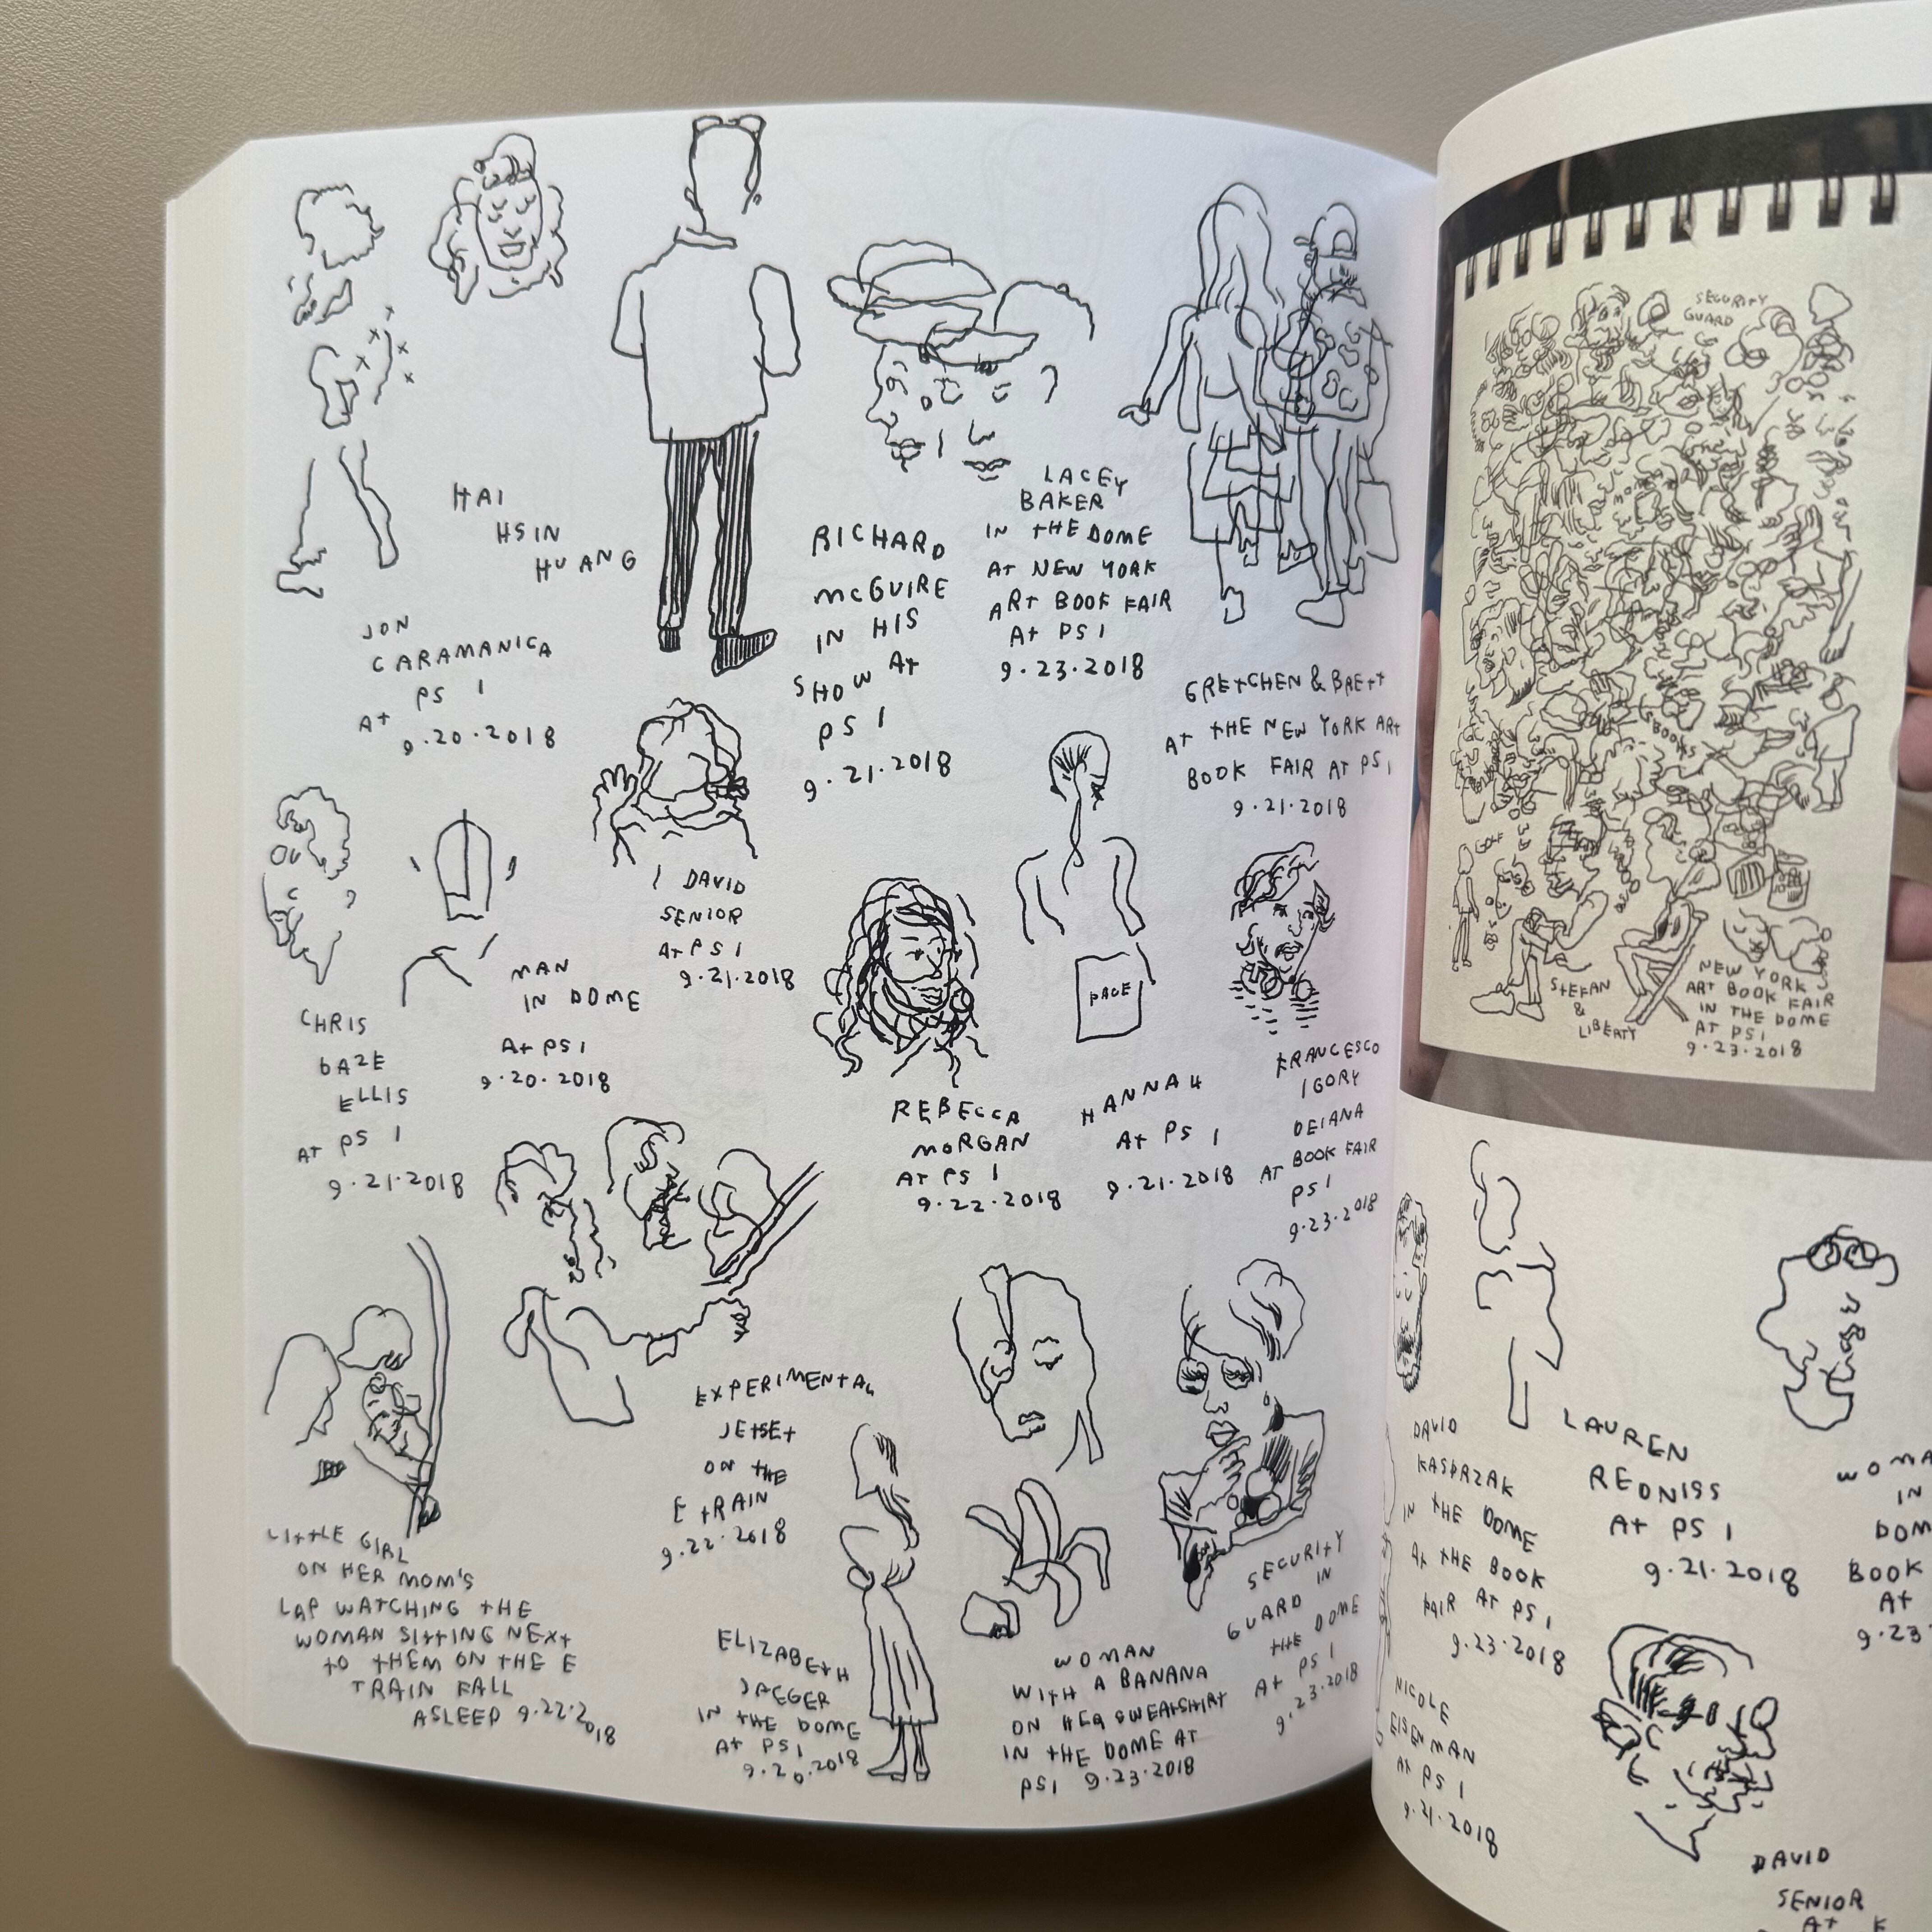 HAI
HSIN
HUANG
JON
CARAMANICA
PS 1
AT
9.20.2018
RICHARD
MCGUIRE
IN HIS
SHOW AT
PS 1
9.21.2018
LACEY
BAKER
IN THE DOME
AT NEW YORK
ART BOOK FAIR
AT PS 1
9.23.2018
GRETCHEN & BRETT
AT THE NEW YORK ART
BOOK FAIR AT PS 1
9.21.2018
DAVID
SENIOR
AT PS 1
9.21.2018
MAN
IN DOME
AT PS 1
9.20.2018
CHRIS
ELLIS
AT PS 1
9.21.2018
REBECCA
MORGAN
AT PS 1
9.22.2018
PAGE
HANNAH
AT PS 1
9.21.2018
FRANCESCO
IGORY
DEIANA
AT BOOK FAIR
PS 1
9.23.2018
EXPERIMENTAL
JETSET
ON THE
E TRAIN
9.22.2018
LITTLE GIRL
ON HER MOM'S
LAP WATCHING THE
WOMAN SITTING NEXT
TO THEM ON THE E
TRAIN FALL
ASLEEP 9.22.2018
ELIZABETH
JAEGER
IN THE DOME
AT PS 1
9.20.2018
WOMAN
WITH A BANANA
ON HER SWEATSHIRT
IN THE DOME AT
PS1 9.23.2018
SECURITY
GUARD IN
THE DOME
AT PS 1
9.23.2018
SECURITY
GUARD
BOOKS
GOLF
STEFAN
&
LIBERTY
NEW YORK
ART BOOK FAIR
IN THE DOME
AT PS1
9.23.2018
DAVID
KASPRZAK
IN THE DOME
AT THE BOOK
FAIR AT PS 1
9.23.2018
LAUREN
REDNISS
AT PS 1
9.21.2018
WOMA
IN
DOM
BOOK
AT
9.23
NICOLE
EISENMAN
AT PS 1
9.21.2018
DAVID
SENIOR
AT